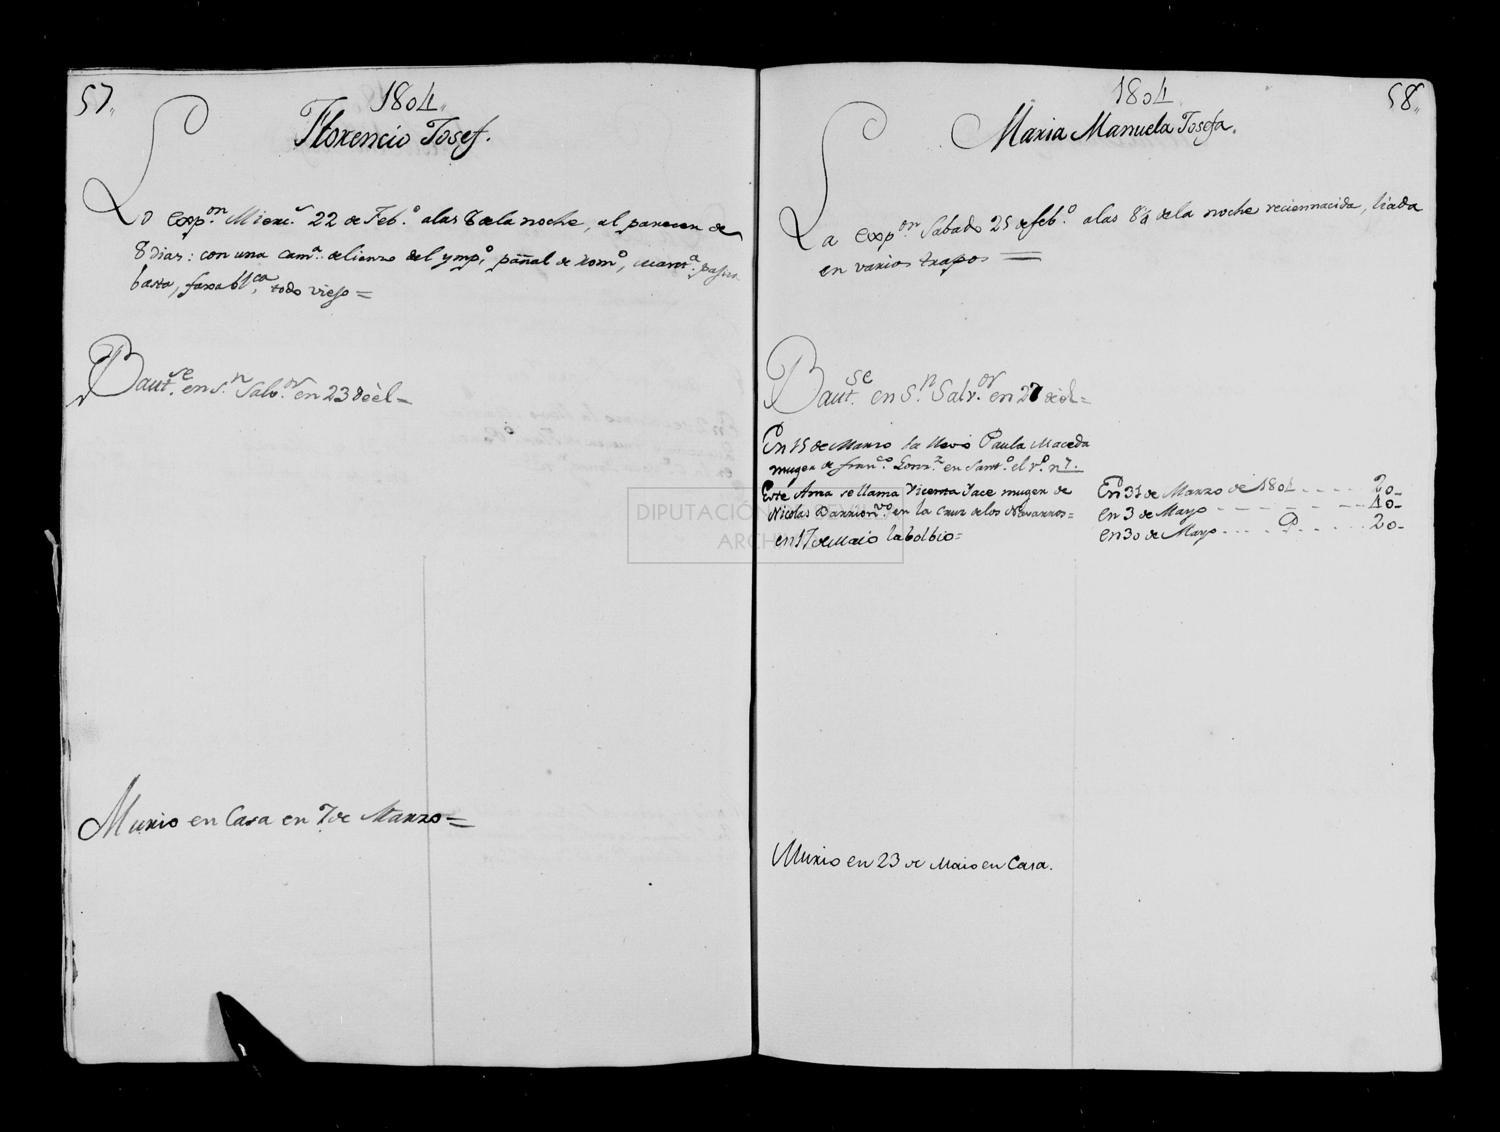 57,,
1804,,
Florencio Josef.
Lo expon. Mierc.s 22 de Feb.o a las 8 de la noche, al parecer de
8 dias: con una cam.a de lienzo del ymp.o, pañal de rom.o, mant.a
basta, faxa bl.ca, todo viejo =
Baut.se en S.n Salv.or en 23 de èl =
Murio en Casa en 7 de Marzo =
1804,,
58,,
Maria Manuela Josefa.
La expon. Sabado 25 de feb.o a las 8¼ de la noche reciennacida, liada
en varios trapos =
Baut.se en S.n Salv.or en 27 de èl =
En 15 de Marzo la llevò Paula Maceda
muger de fran.co Gonz.z en Sant.o el r.o n 7.
Este Ama se llama Vicenta Jace muger de
Nicolas Barrion.vo en la Cruz de los Navarros =
en 17 de Maio la bolbio =
En 31 de Marzo de 1804 - - - - 20 -
en 3 de Mayo - - - - - - - - 40 -
en 30 de Mayo - - - - P. - - - - 20 -
Murio en 23 de Maio en Casa.
DIPUTACIÓN DE SEVILLA
ARCHIVO